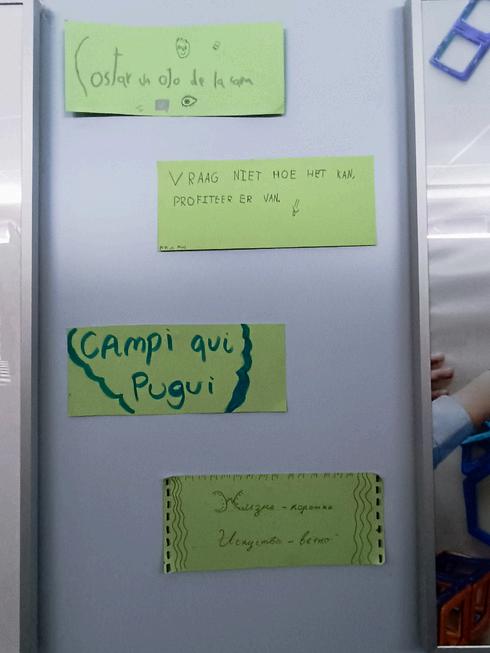 Costar un ojo de la cara
VRAAG NIET HOE HET KAN,
PROFITEER ER VAN.
CAMPi qui
Pugui
Жизнь - коротка
Искуство - вечно